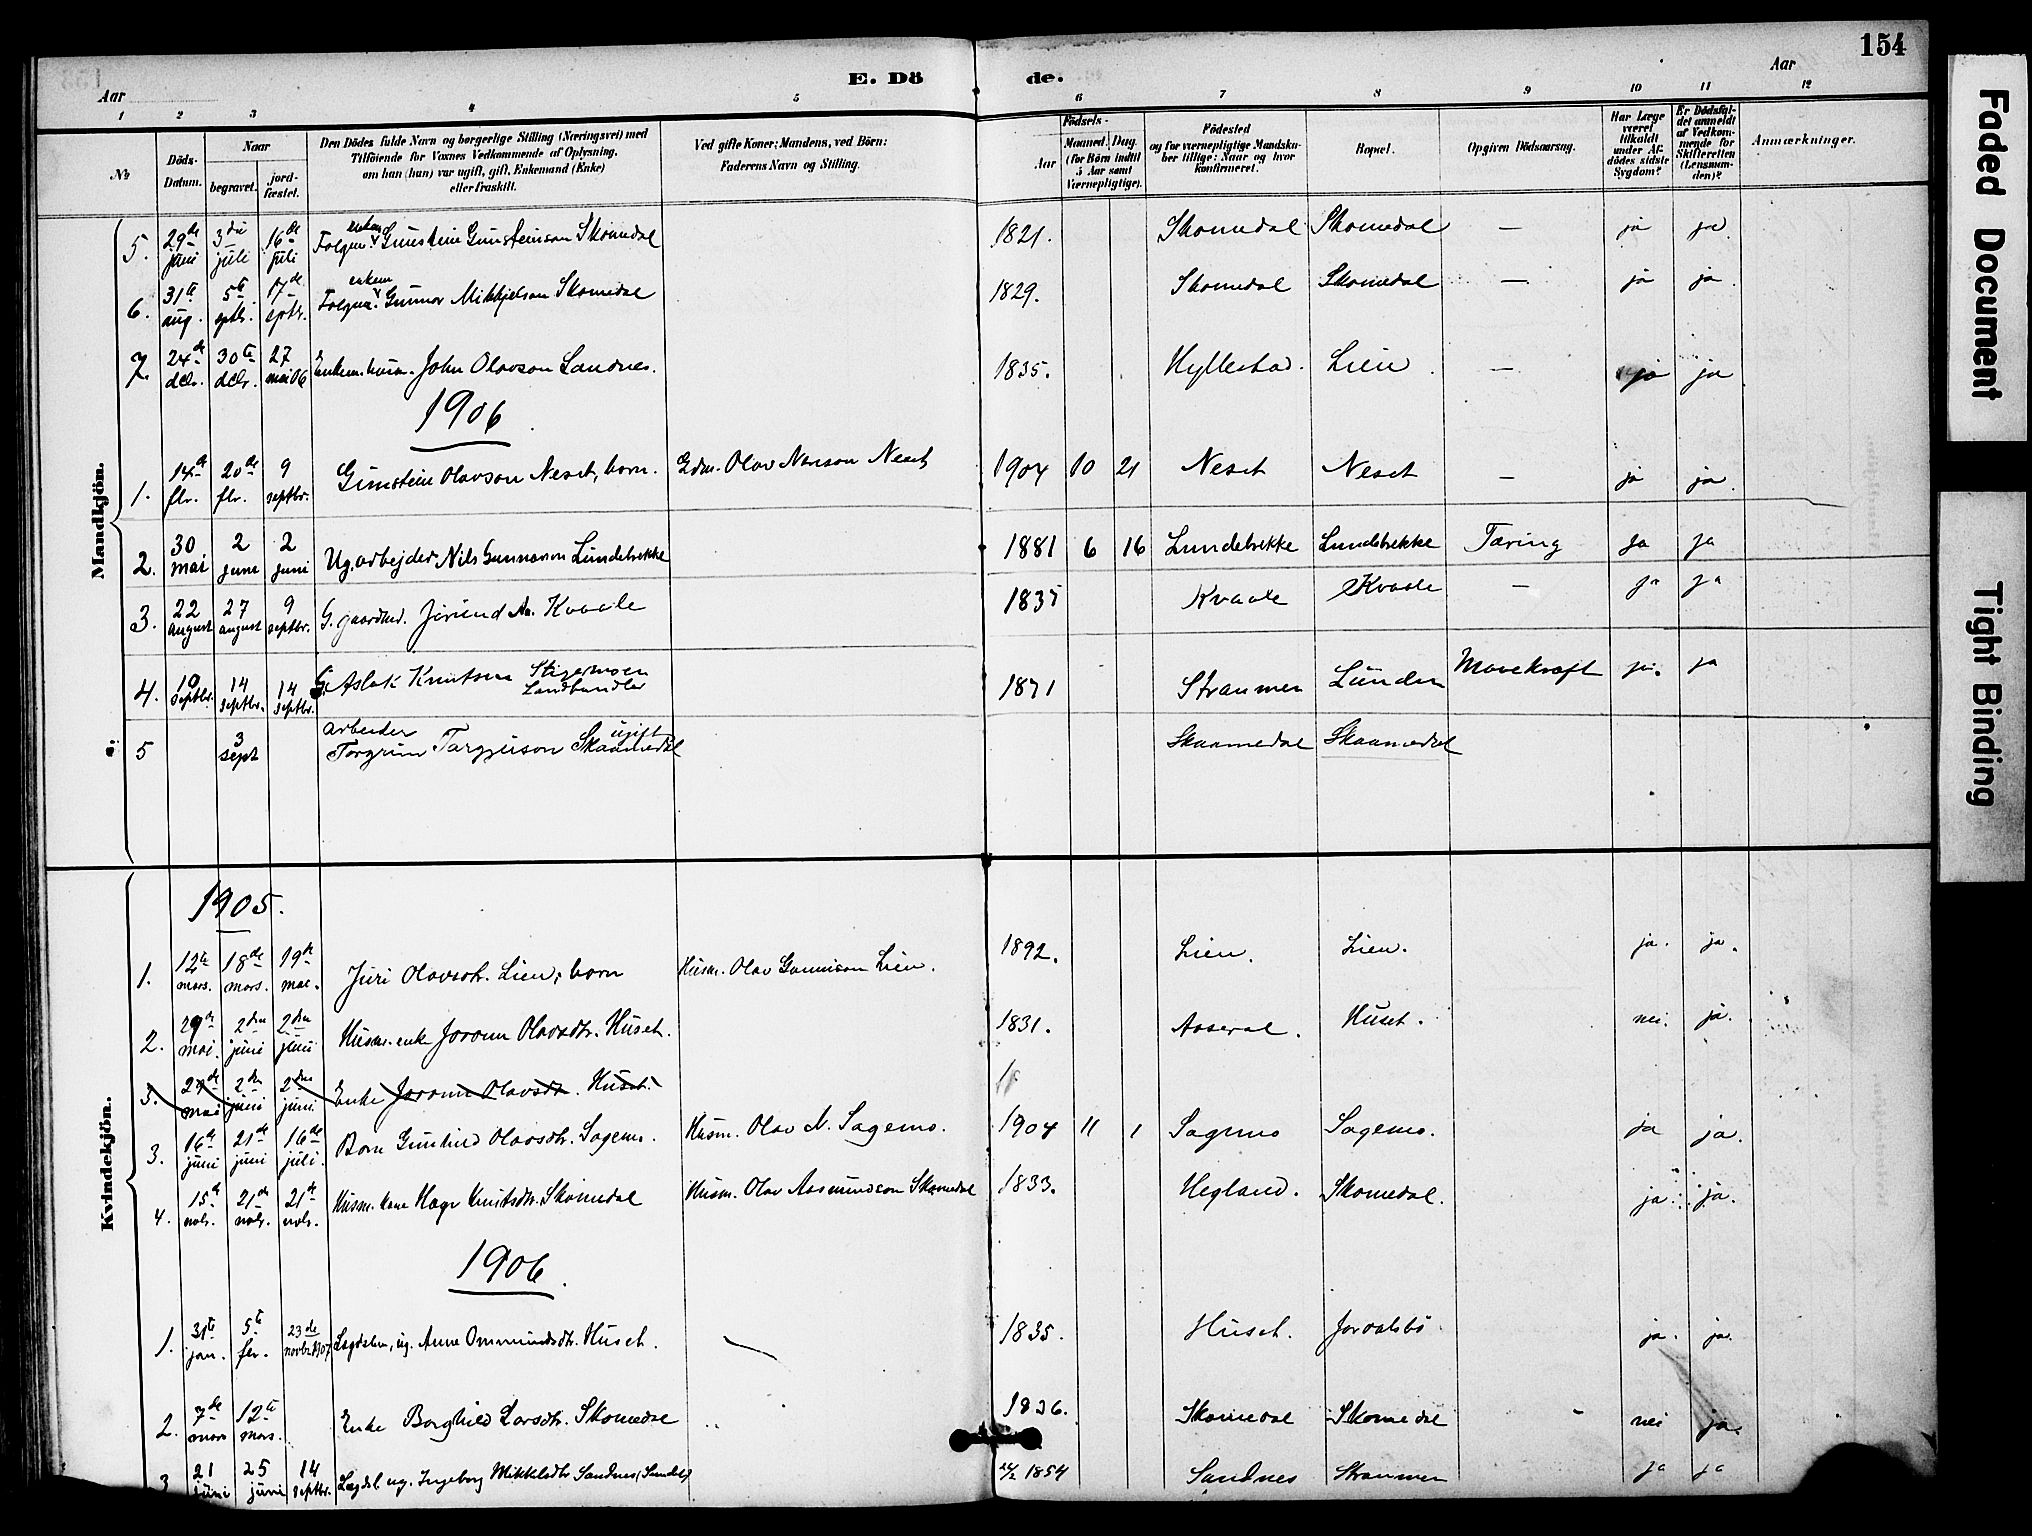 154
E. Dö de.
Aar Aar
1 2 3 4 5 6 7 8 9 10 11 12
No
Döds-Datum.
Naar
begravet.
jord-fæstet.
Den Dödes fulde Navn og borgerlige Stilling (Næringsvei) med
Tilföiende for Voxnes Vedkommende af Oplysning,
om han (hun) var ugift, gift, Enkemand (Enke)
eller fraskilt.
Ved gifte Koner: Mandens, ved Börn:
Faderens Navn og Stilling.
Födsels-
Aar
Maaned. Dag.
(for Börn indtil
5 Aar samt
Værnepligtige).
Födested
og for værnepligtige Mandska-
ber tillige: Naar og hvor
konfirmeret.
Bopæl.
Opgiven Dödsaarsag.
Har Læge
været
tilkaldt
under Af-
dödes sidste
Sygdom?
Er Dödsfal-
det anmeldt
af Vedkom-
mende for
Skifteretten
(Lensman-
den)?
Anmærkninger.
Mandkjön.
5. 29de juni 3die juli 16de juli Folgem. enkem. Gunstein Gunsteinson Skomedal 1821. Skomedal Skomedal — ja ja
6. 31te aug. 5te sptb. 17de sptb. Folgem. enkem Gunnar Mikkjelson Skomedal 1829. Skomedal Skomedal — ja ja
7. 24de dcbr. 30te dcbr. 27 mai 06 Enkem. husm. John Olavson Sandnes. 1835. Hyllestad. Lien — ja ja
1906
1. 14de fbr. 20de fbr. 9 septbr. Gunstein Olavson Neset, born. Gdm. Olav Nenson Neset 1904 10 21 Neset Neset — ja ja
2. 30 mai 2 juni 2 juni Ug. arbejder Nils Gunnarson Lundebrekke 1881 6 16 Lundebrekke Lundebrekke Tæring ja ja
3. 22 august 27 august 9 septbr. G. gaardbr. Jörund Aa. Kvaale 1835 Kvaale Kvaale — ja ja
4. 10 septbr. 14 septbr. 14 septbr. G. Aslak Knutson Stigemoen Landhandler 1871 Straumen Lunden ja. ja
5 3 sept arbeider Torgrim Targjeison Skaamedal ugift Skaamedal Skaamedal
Kvindekjön.
1905.
1. 12te mars. 18de mars. 19de mai. Juri Olavsdtr. Lien, born Husm. Olav Gunnison Lien. 1892. Lien. Lien. ja. ja.
2. 29de mai. 2den juni 2den juni Husm. enke Joronn Olavsdtr. Huset. 1831. Aaseral. Huset. nei. ja.
3. 29de mai 2den juni 2den juni Enke Joronn Olavsdtr. Huset.
3. 16de juni 21de juni 16de juli. Born Gunhild Olavsdtr. Sagemo. Husm. Olav N. Sagemo. 1904 11 1 Sagemo Sagemo. ja ja.
4. 15de nvbr. 21de nvbr. 21de nvbr. Husm. kone Hæge Knutsdtr. Skomedal Husm. Olav Aasmundson Skomedal 1833. Hegland. Skomedal. ja. ja.
1906.
1. 31te jan. 5te fbr. 23de novbr. 1907 Lægdslem, ug. Anne Ommundsdtr. Huset. 1835. Huset. Jordalsbö. ja. ja.
2. 7de mars 12te mars. Enke Borghild Larsdtr. Skomedal 1836. Skomedal Skomedal nei ja.
3. 21 juni 25 juni 14 septbr. Lægdsl. ug. Ingeborg Mikkelsdtr Sandnes 1854 Sandnes Straumen ja ja
Faded Document
Tight Binding